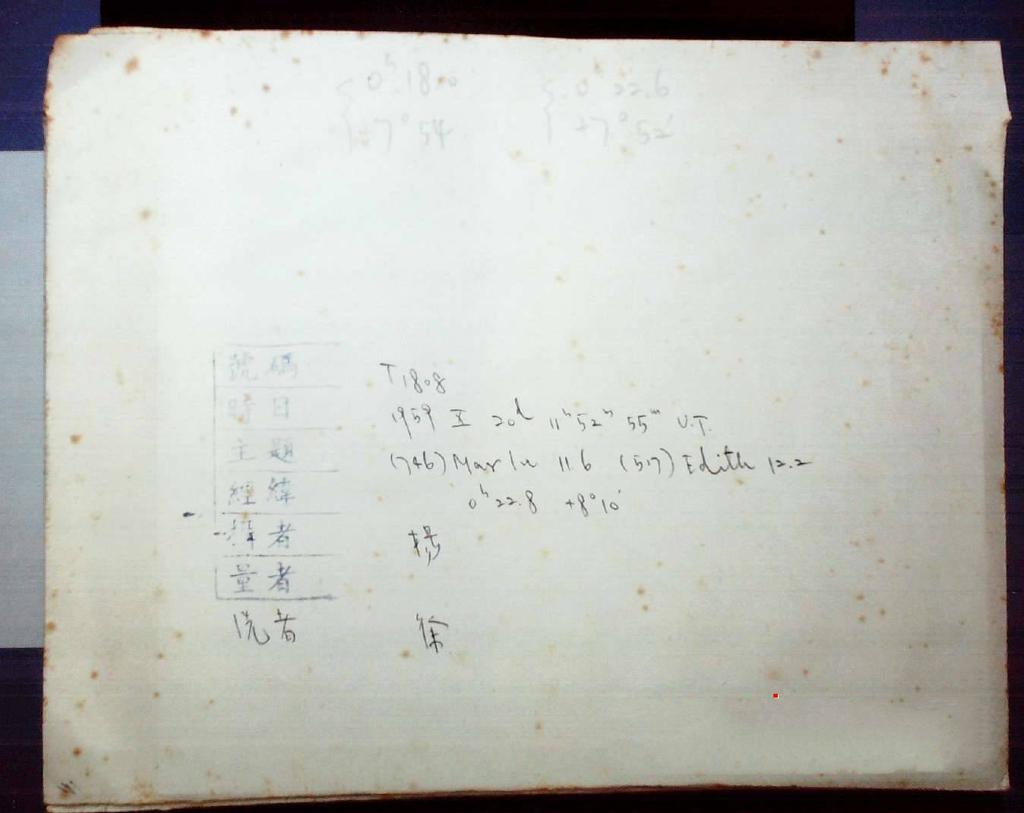 0ʰ 18.0 0 22.6
+7° 54 +7° 52'
號碼 T1808
時日 1959 X 20d 11ʰ 52ᵐ 55ᵐ U.T.
主題 (746) Marlu 11.6 (517) Edith 12.2
經緯 0ʰ 22.8 +8° 10'
攝者 楊
量者
洗者 徐